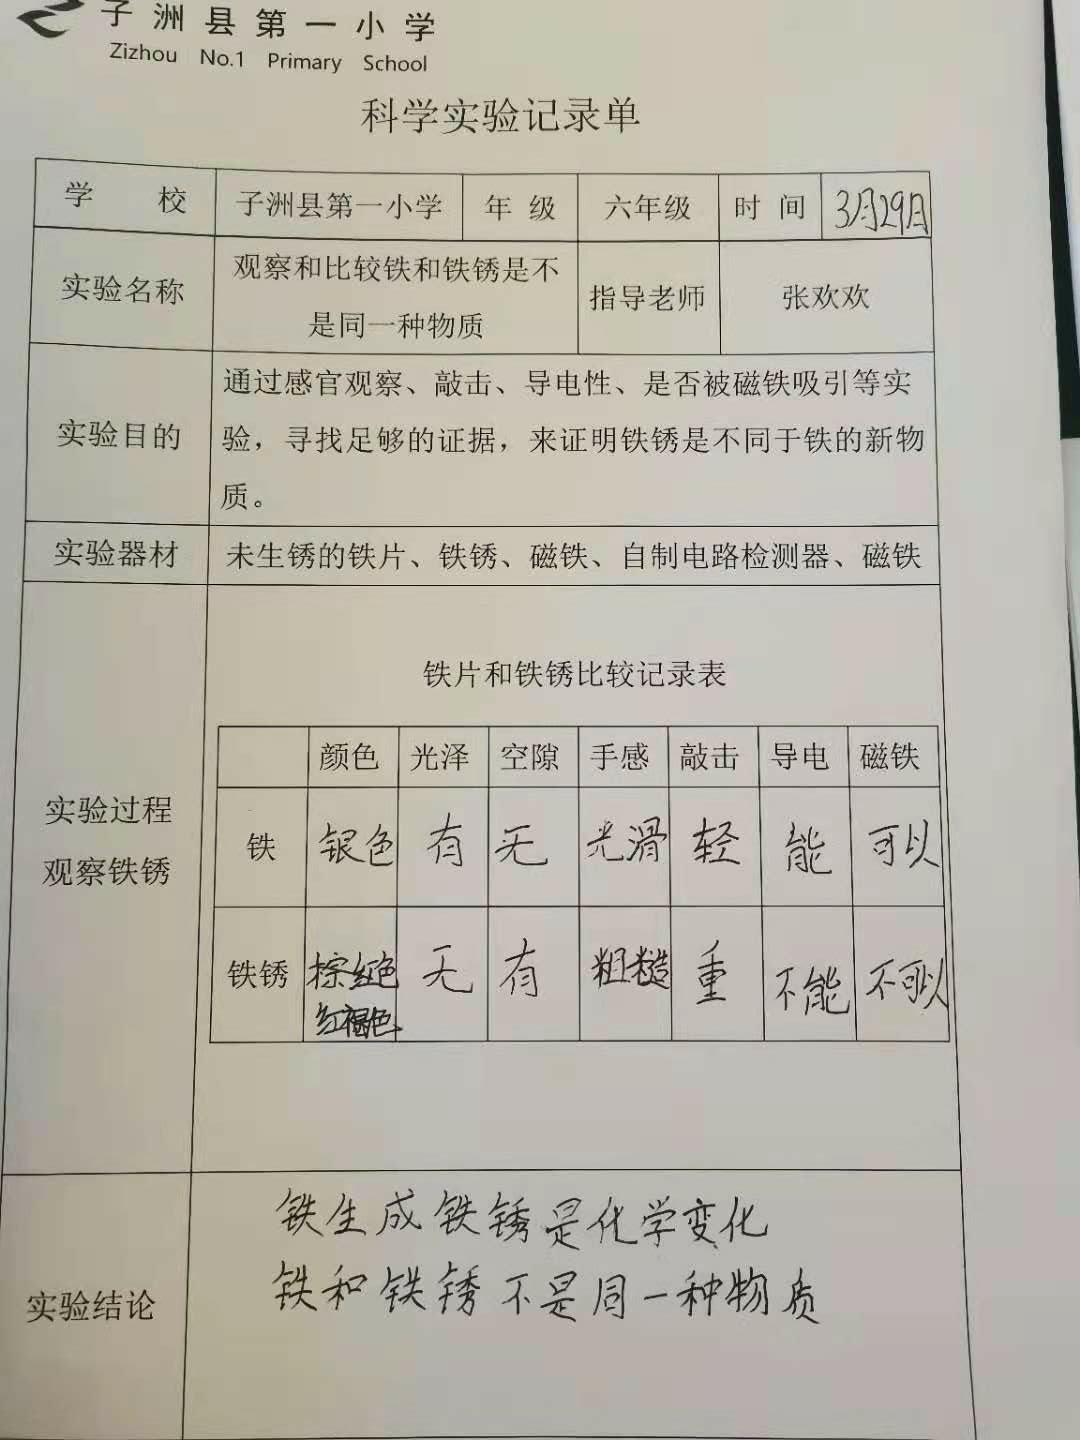 子洲县第一小学
Zizhou No.1 Primary School
科学实验记录单
学 校 子洲县第一小学 年 级 六年级 时 间 3月29日
实验名称 观察和比较铁和铁锈是不
是同一种物质 指导老师 张欢欢
实验目的 通过感官观察、敲击、导电性、是否被磁铁吸引等实
验，寻找足够的证据，来证明铁锈是不同于铁的新物
质。
实验器材 未生锈的铁片、铁锈、磁铁、自制电路检测器、磁铁
实验过程
观察铁锈
铁片和铁锈比较记录表
颜色 光泽 空隙 手感 敲击 导电 磁铁
铁 银色 有 无 光滑 轻 能 可以
铁锈 棕红色 无 有 粗糙 重 不能 不可以
红褐色
实验结论
铁生成铁锈是化学变化
铁和铁锈不是同一种物质